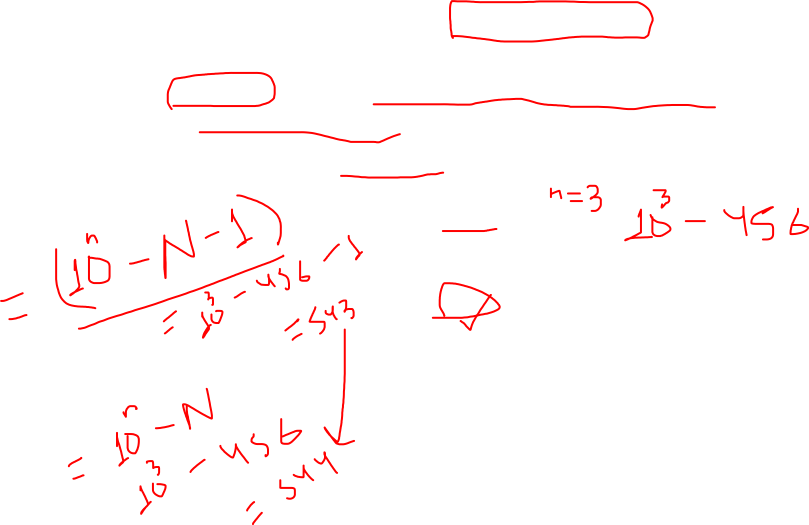 n=3 10³ - 456
= (10ⁿ - N - 1)
= 10³ - 456 - 1
= 543
= 10ⁿ - N
10³ - 456
= 544